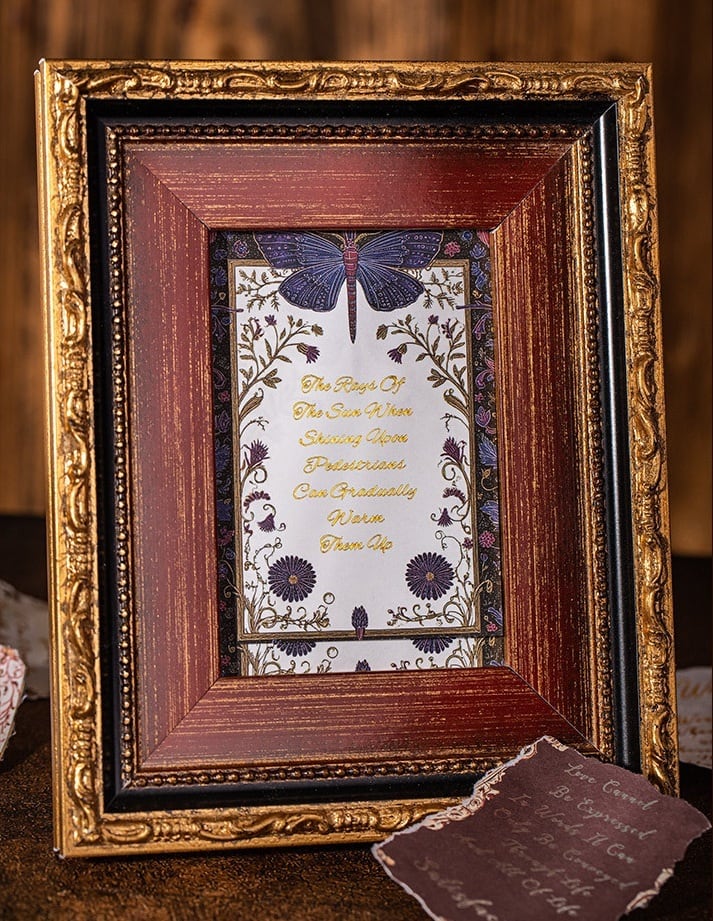 The Rays Of
The Sun When
Shining Upon
Pedestrians
Can Gradually
Warm
Them Up
Love Cannot
Be Expressed
In Words It Can
Only Be Conveyed
Through Life
All Of Life